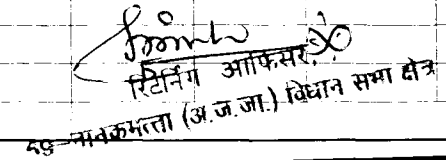 रिटर्निंग आफिसर,
69-नानकमत्ता (अ.ज.जा.) विधान सभा क्षेत्र